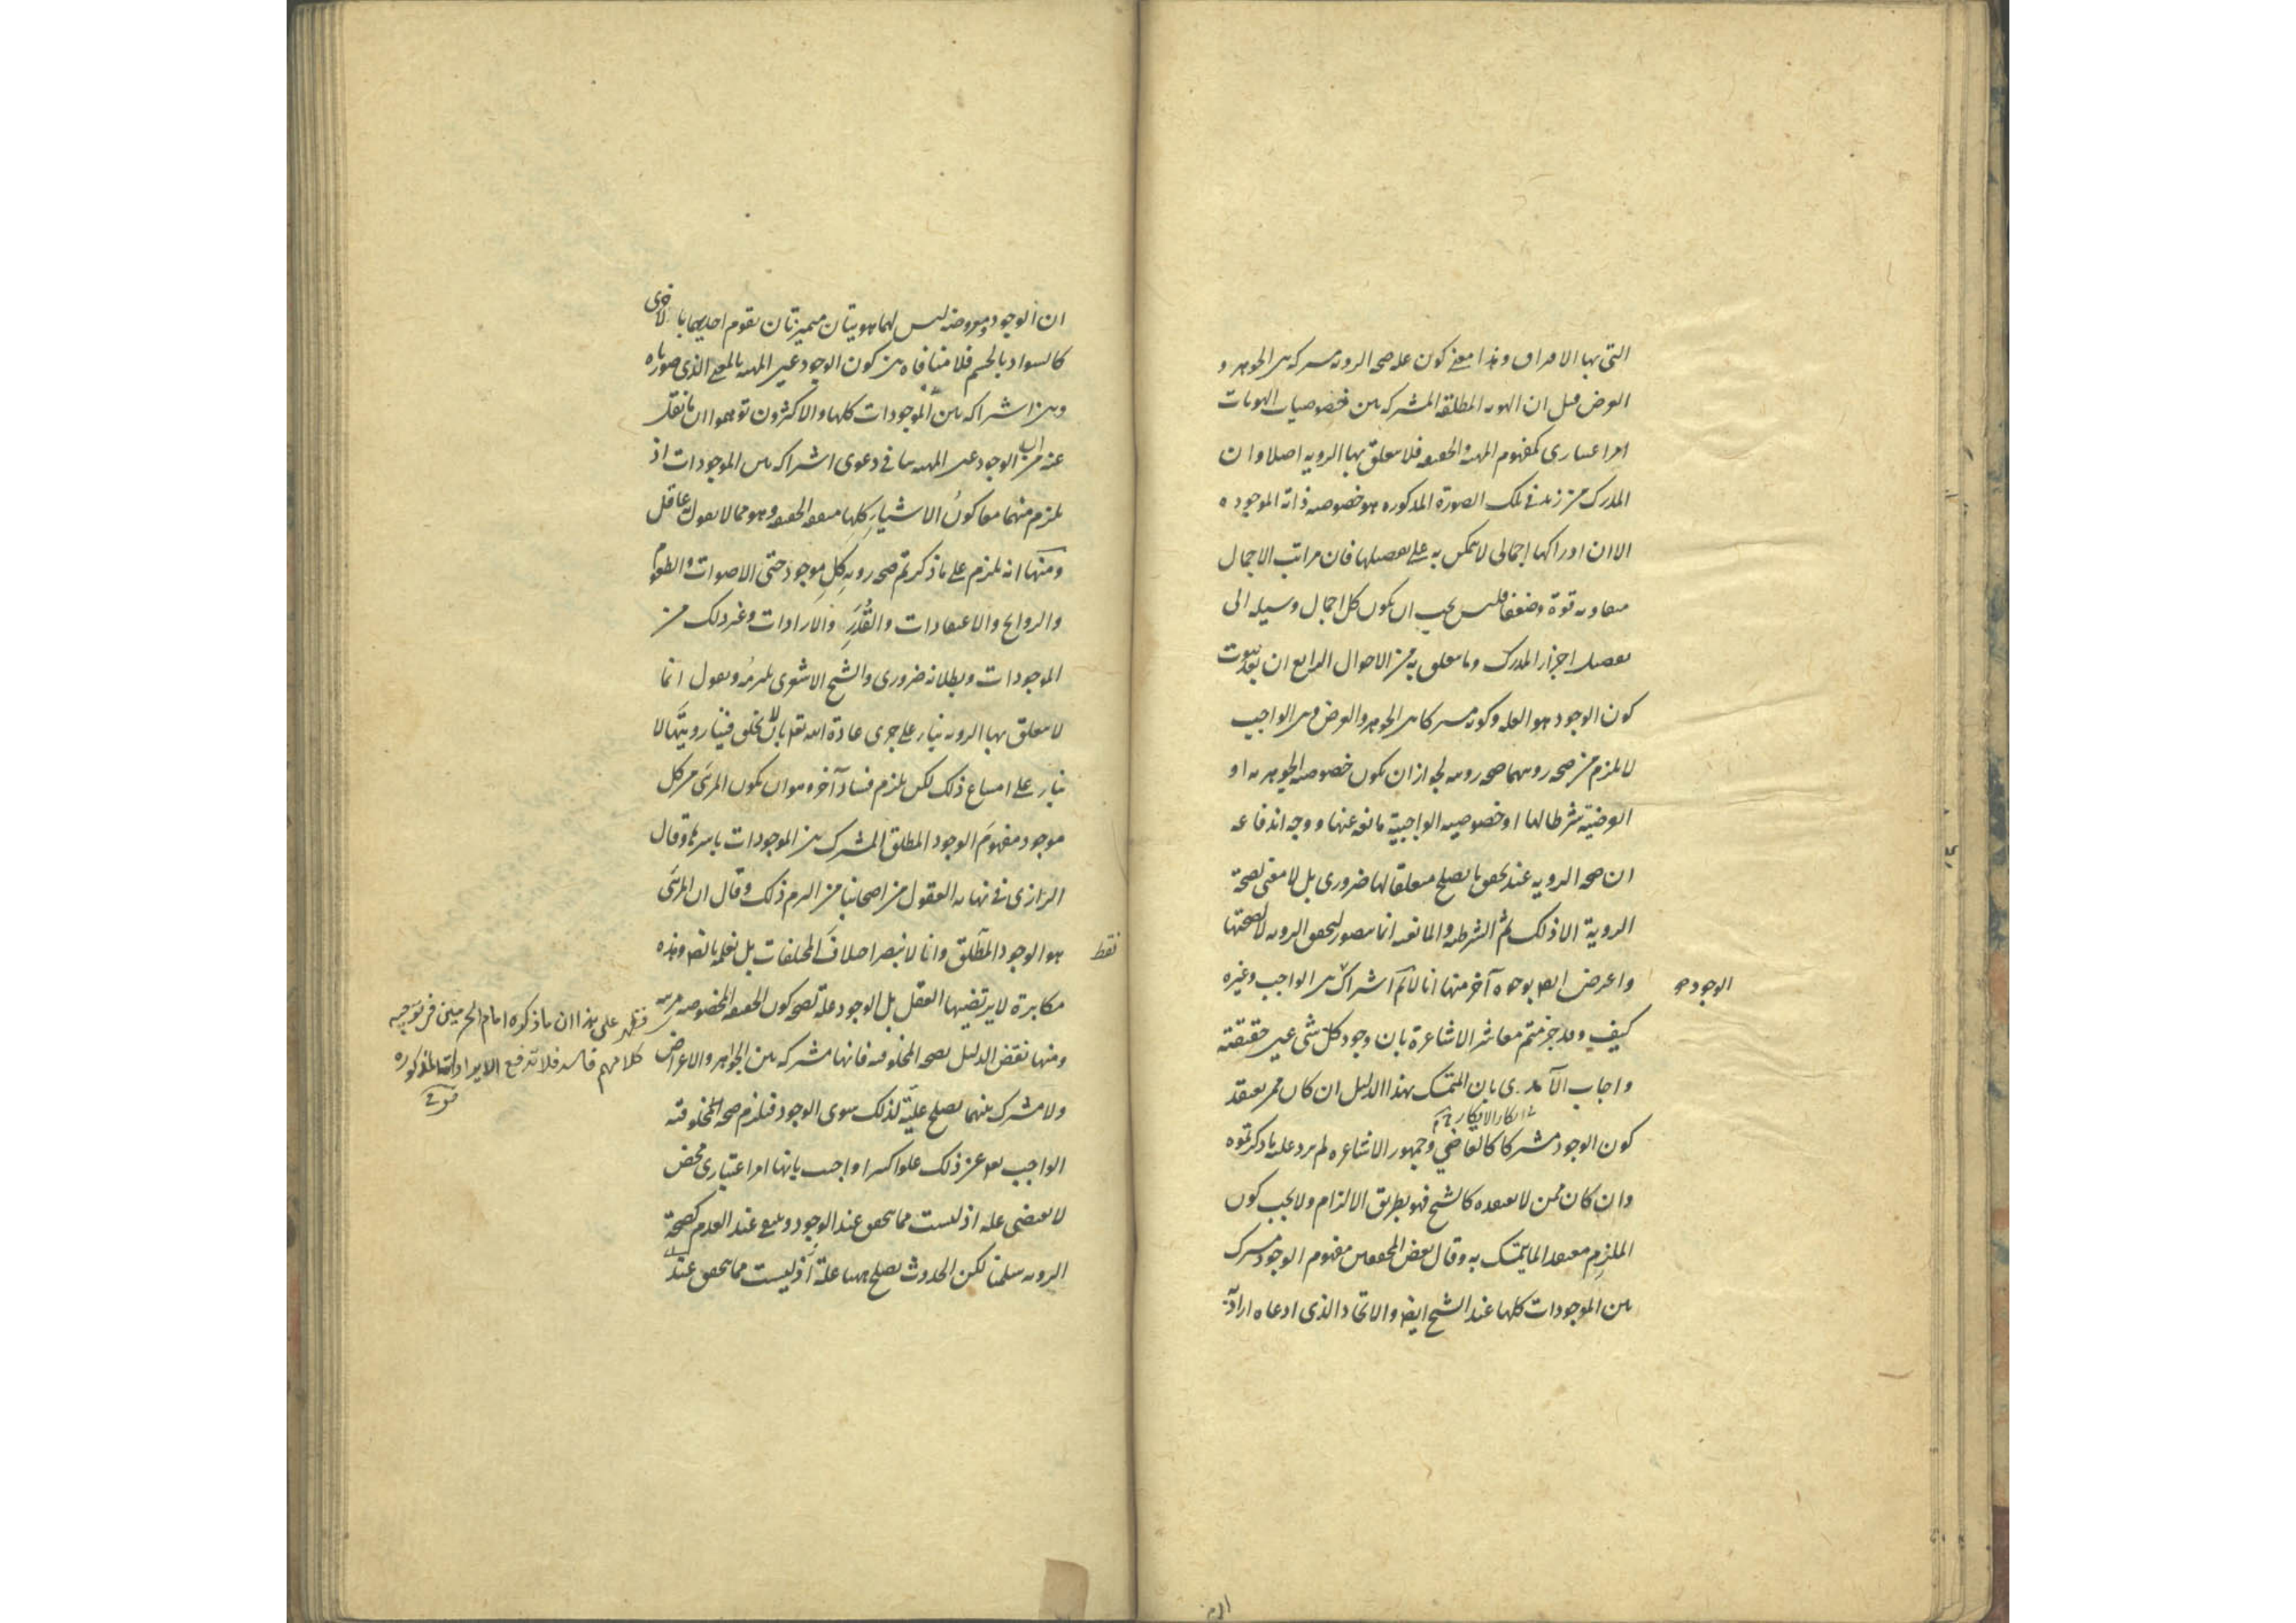 التي بها الافتراق وهذا معنى كون علة صحة الرؤية مشتركة بين الجوهر و
العرض قيل ان الهوية المطلقة المشتركة بين خصوصيات الهويات
امر اعتباري كمفهوم المهية والحقيقة فلا يتعلق بها الرؤية اصلا وان
المدرك من زيد في تلك الصورة المذكورة هو خصوصية ذاته الموجودة
الا ان ادراكها اجمالي لا يتمكن به على تفصيلها فان مراتب الاجمال
متفاوتة قوة وضعفا فليس يجب ان يكون كل اجمال وسيلة الى
تفصيل اجزاء المدرك وما يتعلق به من الاحوال الرابع ان بعد ثبوت
كون الوجود هو العلة وكونه مشتركا بين الجوهر والعرض وبين الواجب
لا يلزم من صحة رؤيتهما صحة رؤيته لجواز ان يكون خصوصية الجوهرية او
العرضية شرطا لها او خصوصية الواجبية مانعة عنها ووجه اندفاعه
ان صحة الرؤية عند تحقق ما يصلح متعلقا لها ضروري بل لا معنى لصحة
الرؤية الا ذلك ثم الشرطية والمانعية انما يتصور لتحقق الرؤية لا لصحتها
واعترض ايضا بوجوه آخر منها انا لا نم اشتراك بين الواجب وغيره
الوجود صح
كيف وقد جزمتم معاشر الاشاعرة بان وجود كل شئ عين حقيقته
واجاب الآمدي بان المتمسك بهذا الدليل ان كان ممن يعتقد
كون الوجود مشتركا كالقاضي وجمهور الاشاعرة لم يرد عليه ما ذكرتموه
وان كان ممن لا يعتقده كالشيخ فهو بطريق الالزام ولا يجب كون
الملزم معتقدا لما يتمسك به وقال بعض المحققين مفهوم الوجود مشترك
بين الموجودات كلها عند الشيخ ايضا والاتحاد الذي ادعاه اراد به
ان الوجود ومعروضه ليس لهما هويتان متميزتان يقوم احديهما بالاخرى
كالسواد بالجسم فلا منافاة بين كون الوجود عين المهية بالمعنى الذي صورناه
وبين اشتراكه بين الموجودات كلها والاكثرون توهموا ان ما نقل
عنه من ان الوجود عين المهية ينافي دعوى اشتراكه بين الموجودات اذ
يلزم منهما معا كون الاشياء كلها متفقة الحقيقة وهو مما لا يقول به عاقل
ومنها انه يلزم على ما ذكرتم صحة رؤية كل موجود حتى الاصوات والطعوم
والروايح والاعتقادات والقدر والارادات وغير ذلك من
الموجودات وبطلانه ضروري والشيخ الاشعري يلتزمه ويقول انما
لا يتعلق بها الرؤية بناء على جرى عادة الله تعالى بان لا يخلق فينا رؤيتها لا
بناء على امتناع ذلك لكن يلزم فساد آخر وهو ان يكون المرئي من كل
موجود مفهوم الوجود المطلق المشترك بين الموجودات باسرها وقال
الرازي في نهاية العقول من اصحابنا من التزم ذلك وقال ان المرئي
هو الوجود المطلق وانا لا نبصر اختلاف المختلفات بل نعلمه بالضرورة وهذه
فقط
مكابرة لا يرتضيها العقل بل الوجود علة لصحة كون الحقيقة المخصوصة مرئية
ومنها نقض الدليل بصحة المخلوقية فانها مشتركة بين الجواهر والاعراض
ولا مشترك بينهما يصلح علية لذلك سوى الوجود فيلزم صحة مخلوقية
الواجب تعالى عن ذلك علوا كبيرا واجيب بانها امر اعتباري محض
لا يقتضي علة اذ ليست مما يتحقق عند الوجود وينتفي عند العدم كصحة
الرؤية سلمنا لكن الحدوث يصلح ههنا علة اذ ليست مما يتحقق عند
فظهر على هذا ان ما ذكره امام الحرمين في توجيه
كلامهم فاسد فلا تدفع الايرادات المذكورة